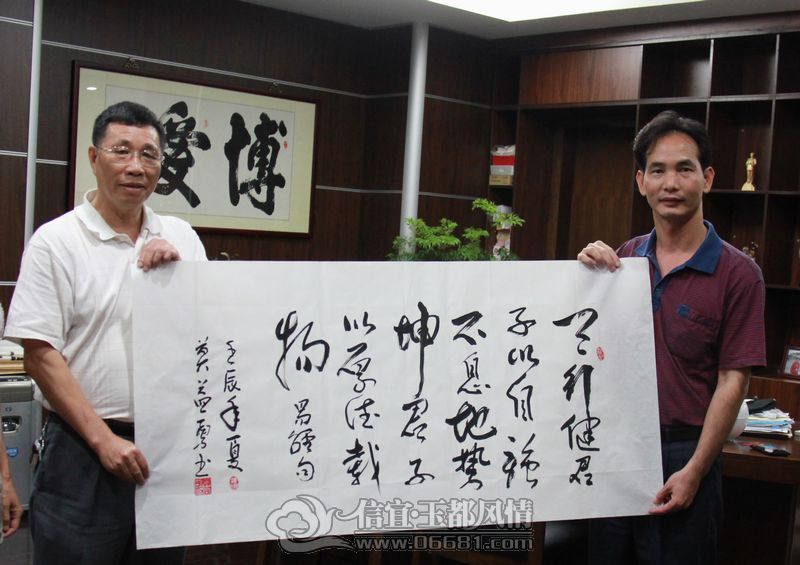 博愛
天行健君
子以自強
不息地势
坤君子
以厚德載
物 易經句
壬辰年夏
莫益勇书
信宜·玉都风情
www.06681.com